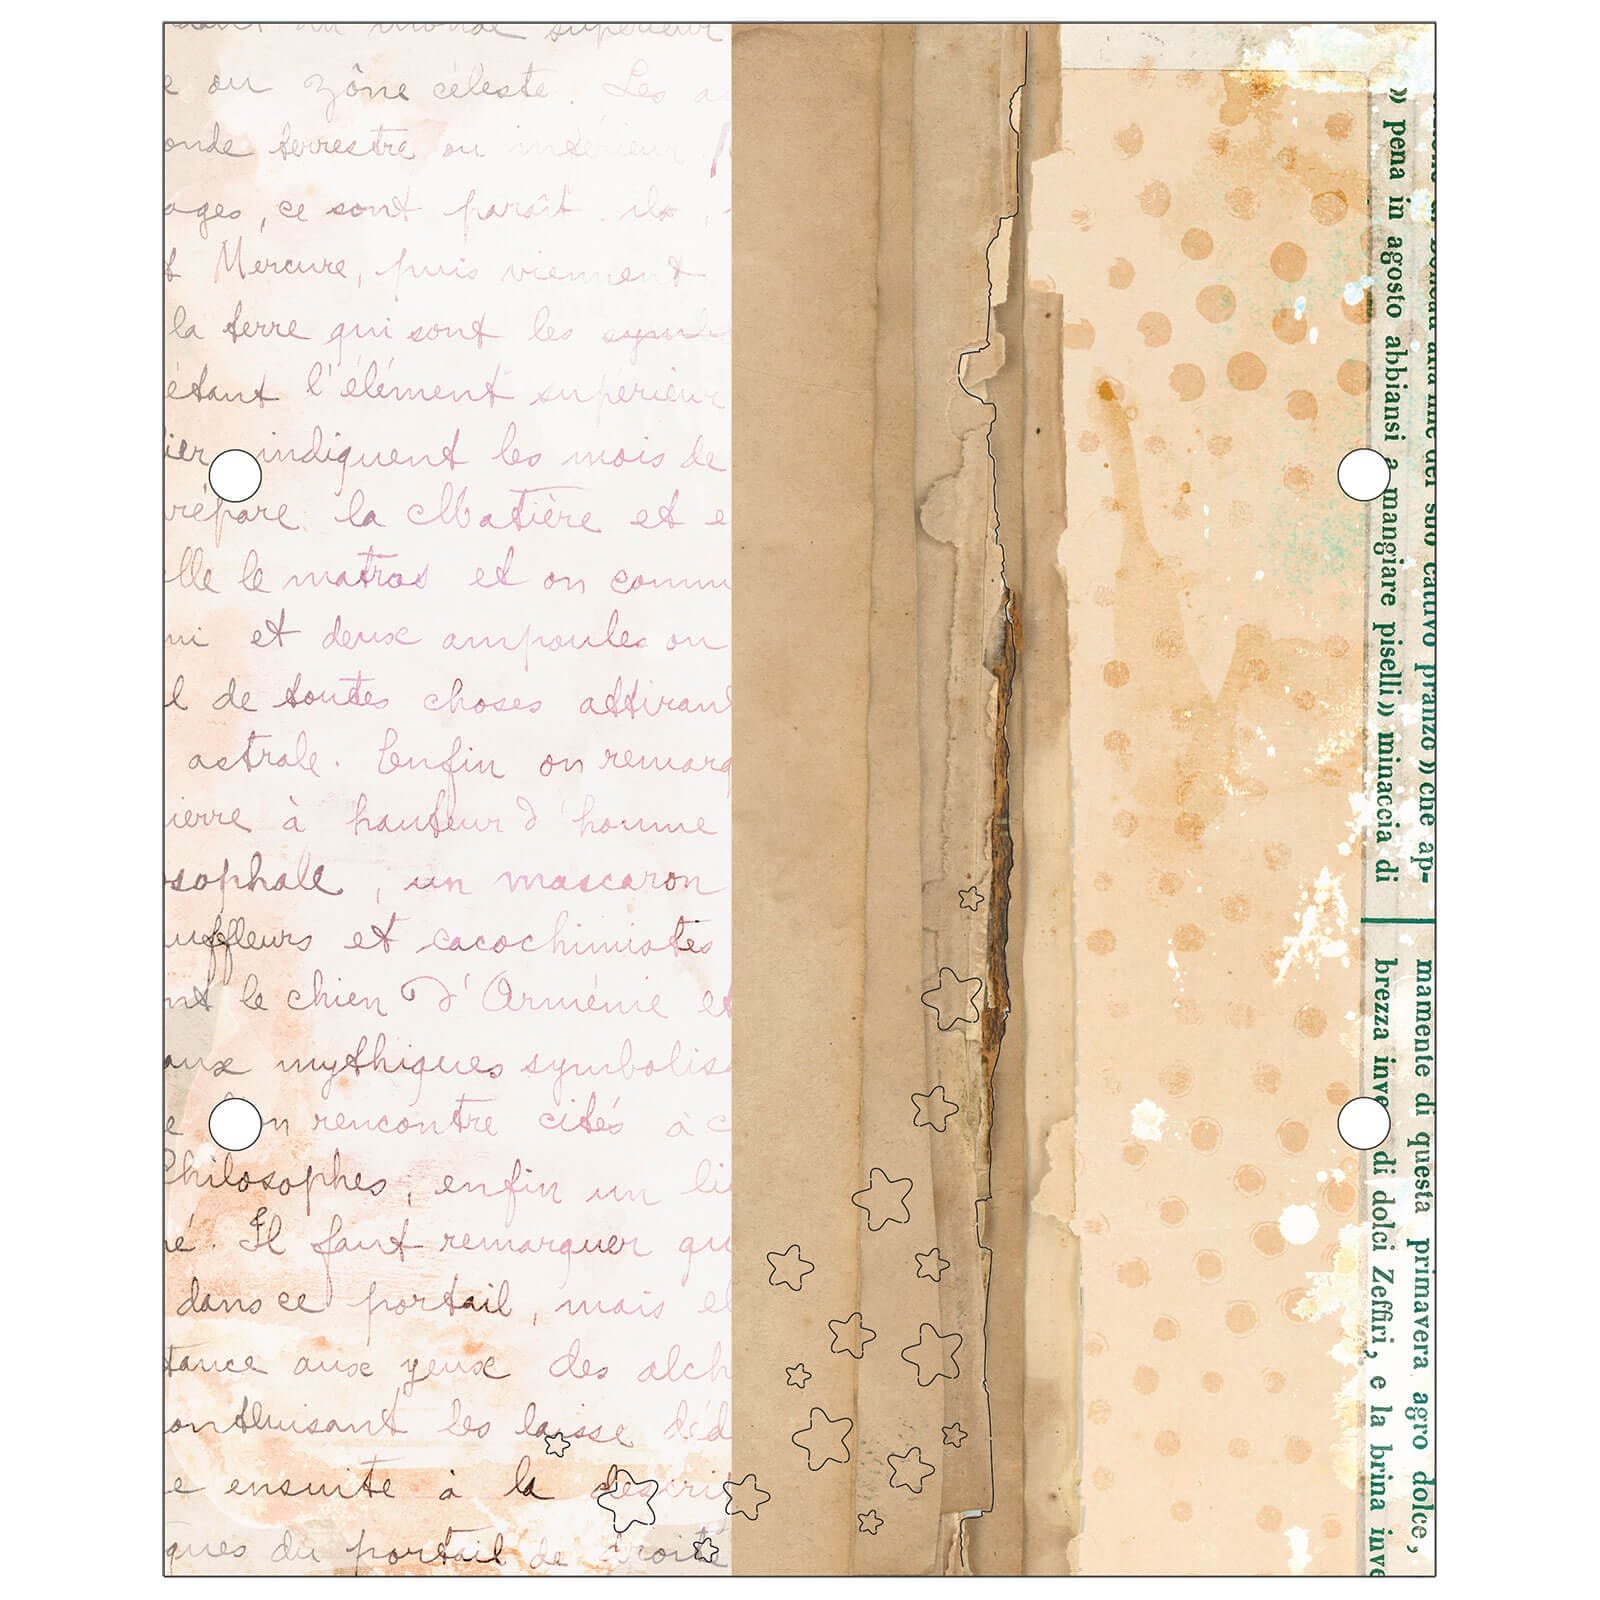 dant du monde supérieur
e ou zône céleste. Les a
onde terrestre ou intérieur
ages, ce sont paraît ils,
t Mercure, puis viennent
la terre qui sont les symb
étant l'élément supérieur
ier indiquent les mois de
répare la Matière et e
lle le matras et on comm
ni et deux ampoules ou
l de toutes choses attirant
astrale. Enfin on remarq
ierre à hauteur d'homme
sophale, un mascaron
uffleurs et cacochimistes
nt le chien d'Arménie et
aux mythiques symbolis
e on rencontre cités à c
Philosophes, enfin un li
né. Il faut remarquer qu
dans ce portail, mais el
tance aux yeux des alch
onthuisant les laisse déd
e ensuite à la descri
ques du portail de droite
del suo cattivo pranzo » che ap-
» pena in agosto abbiansi a mangiare piselli » minaccia di
mamente di questa primavera agro dolce,
brezza inve di dolci Zeffiri, e la brina inve